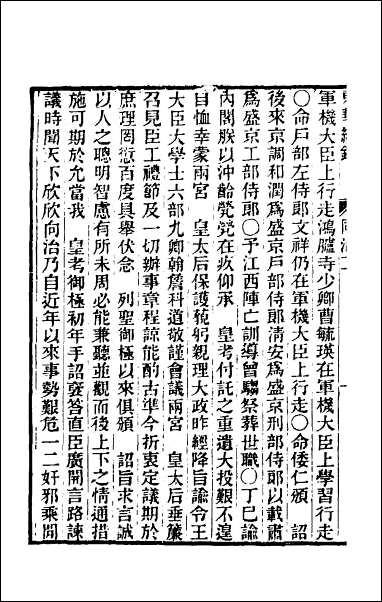 軍機大臣上行走鴻臚寺少卿曹毓瑛在軍機大臣上學習行走
○命戶部左侍郎文祥仍在軍機大臣上行走○命倭仁頒　詔
後來京調和潤爲盛京戶部侍郎淸安爲盛京刑部侍郎以載肅
爲盛京工部侍郎○予江西陣亡訓導曾驌祭葬世職○丁巳諭
內閣朕以沖齡煢煢在疚仰承　皇考付託之重遺大投艱不遑
自恤幸蒙兩宮　皇太后保護藐躬親理大政昨經降旨諭令王
大臣大學士六部九卿翰詹科道敬謹會議兩宮　皇太后垂簾
召見臣工禮節及一切辦事章程諒能酌古準今折衷定議期於
庶理罔愆百度具舉伏念　列聖御極以來俱頒　詔旨求言誠
以人之聰明智慮有所未周必能兼聽並觀而後上下之情通措
施可期於允當我　皇考御極初年手詔裦答直臣廣開言路諫
議時聞天下欣欣向治乃自近年以來事勢艱危一二奸邪乘閒